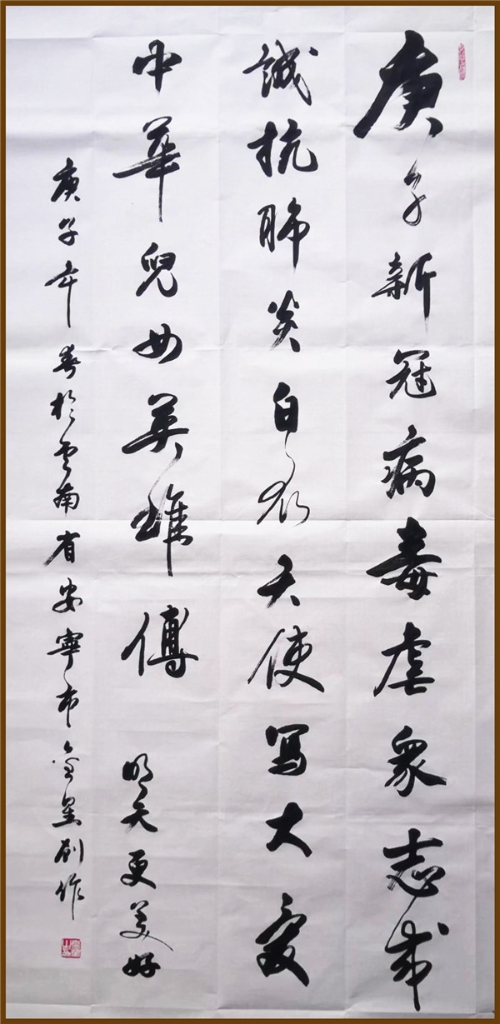 庚子新冠病毒虐衆志成
誠抗肺炎白衣天使写大愛
中華兒女英雄傳 明天更美好
庚子年春於雲南省安寧市金星刘作